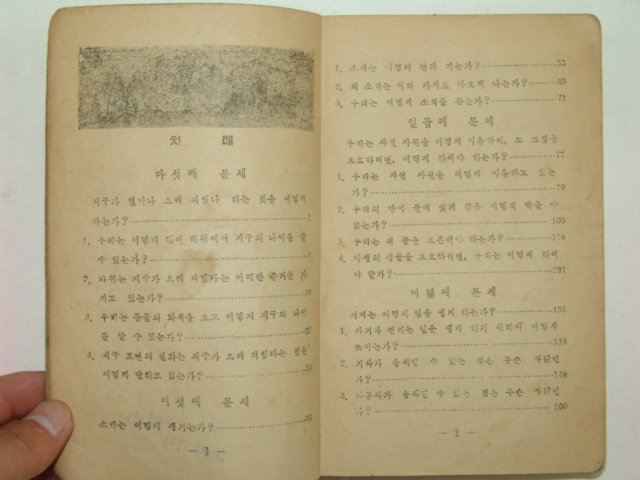 차 례
다섯째 문제
지구가 얼마나 오래 되었나 하는 것을 어떻게
아는가?
1. 우리는 어떻게 하여 바위에서 지구의 나이를 알
수 있는가?
2. 바위는 지구가 오래 되었다는 어떠한 증거를 가
지고 있는가?
3. 우리는 동물의 화석을 보고 어떻게 지구의 나이
를 알 수 있는가?
4. 지구 표면의 변화는 지구가 오래 되었다는 것을
어떻게 말하고 있는가?
여섯째 문제
소리는 어떻게 생기는가?
— 1 —
1. 소리는 어떻게 전해 지는가? 55
2. 왜 소리는 여러 가지로 다르게 나는가? 65
3. 우리는 어떻게 소리를 듣는가? 71
일곱째 문제
우리는 자연 자원을 어떻게 이용하며, 또 그것을
보호하려면, 어떻게 하여야 하는가? 77
1. 우리는 자연 자원을 어떻게 이용하고 있는
가? 79
2. 우리의 땅이 물에 씻겨 감을 어떻게 막을 수
있는가? 105
3. 우리는 왜 물을 보존해야 하는가? 114
4. 야생의 생물을 보호하려면, 우리는 어떻게 하여
야 할가? 121
여덟째 문제
기계는 어떻게 일을 쉽게 하는가? 131
1. 자기와 전기는 일을 쉽게 하기 위하여 어떻게
쓰이는가? 133
2. 기차가 움직일 수 있는 것은 무슨 까닭인
가? 148
3. 자동차가 움직일 수 있는 것은 무슨 까닭인
가? 160
— 2 —